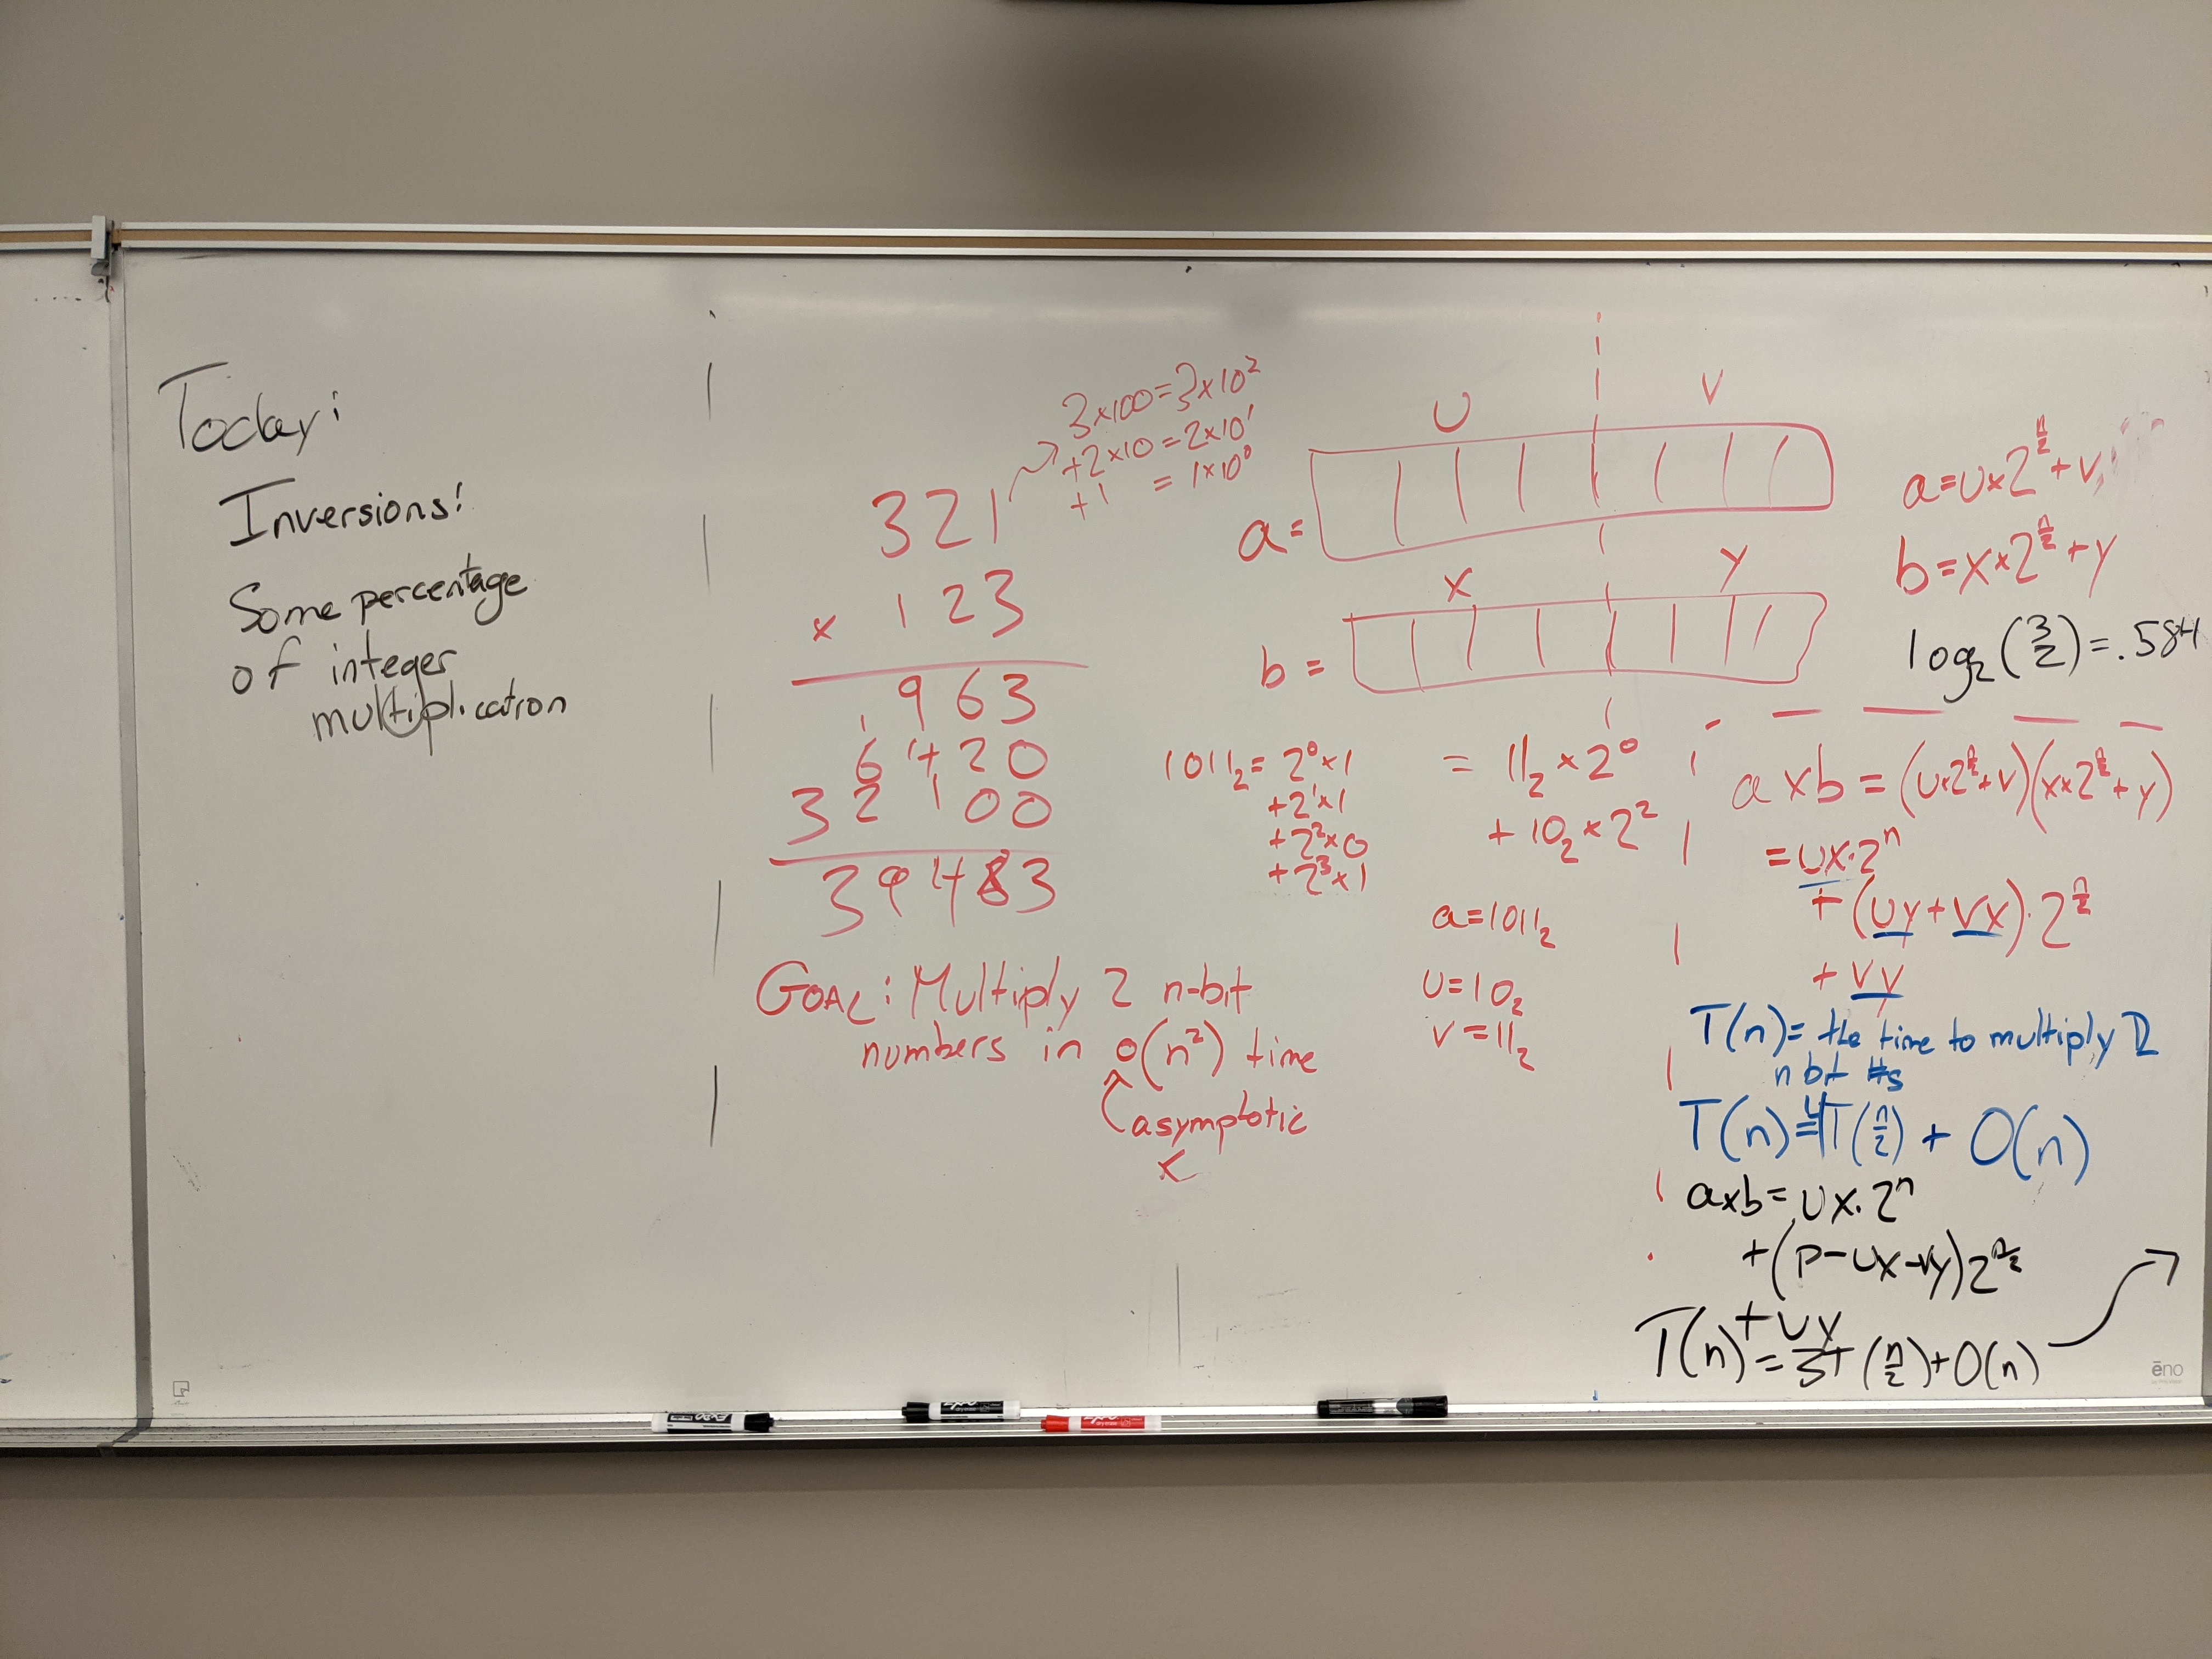 Today:
Inversions!
Some percentage
of integer
multiplication
3×100=3×10²
+2×10=2×10¹
+1 = 1×10⁰
321
× 123
963
1
6420
32100
39483
GOAL: Multiply 2 n-bit
numbers in o(n²) time
asymptotic
<
U V
a=
X Y
b=
1011₂= 2⁰×1
+2¹×1
+2²×0
+2³×1
= 11₂×2⁰
+ 10₂×2²
a=1011₂
U=10₂
V=11₂
a=U×2^(n/2)+V
b=X×2^(n/2)+y
log₂(3/2)=.584
a×b=(U×2^(n/2)+V)(X×2^(n/2)+y)
=UX·2ⁿ
+(Uy+VX)·2^(n/2)
+Vy
T(n)= the time to multiply 2
n bit #s
T(n)=4T(n/2) + O(n)
a×b=UX·2ⁿ
+(P-UX-Vy)2^(n/2)
+Uy
T(n)=3T(n/2)+O(n)
ēno